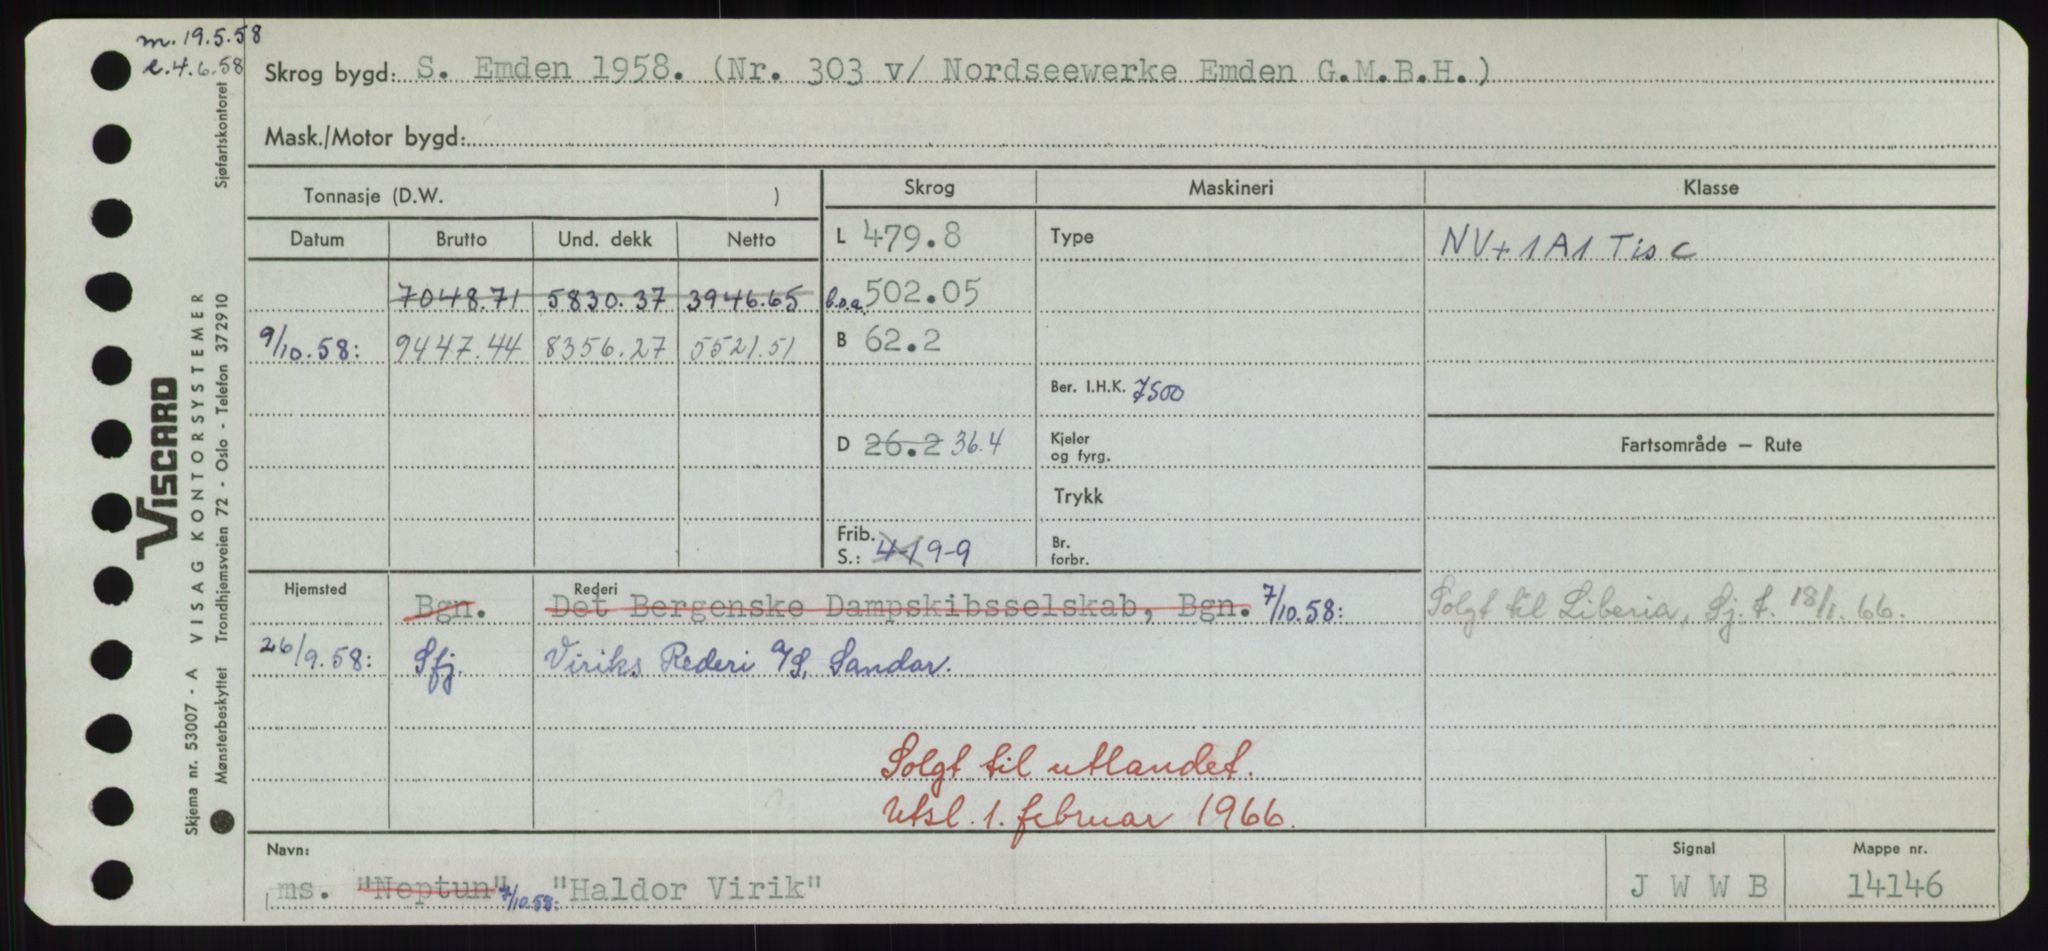 m. 19.5.58
e. 4.6.58
Skrog bygd: S. Emden 1958. (Nr. 303 v/ Nordseewerke Emden G.M.B.H.)
Mask./Motor bygd:
Tonnasje (D.W. )
Skrog Maskineri Klasse
Datum Brutto Und. dekk Netto
L 479.8 Type NV+1A1 Tis C
7048.71 5830.37 3946.65 l.o.a. 502.05
9/10.58: 9447.44 8356.27 5521.51 B 62.2
Ber. I.H.K. 7500
D 26.2 36.4 Kjeler og fyrg. Fartsområde — Rute
Trykk
Frib. S.: 4-1 9-9 Br. forbr.
Hjemsted Bgn. Rederi Det Bergenske Dampskibsselskab, Bgn. 7/10.58: Solgt til Liberia, Sj. f. 18/1.66.
26/9.58: Sfj. Viriks Rederi A/S, Sandar.
Solgt til utlandet.
Utsl. 1. februar 1966.
Navn: Signal Mappe nr.
ms. "Neptun" 7/10.58: "Haldor Virik" J W W B 14146
VISCARD
Skjema nr. 53007 - A VISAG KONTORSYSTEMER
Mønsterbeskyttet Trondhjemsveien 72 - Oslo - Telefon 372910 Sjøfartskontoret